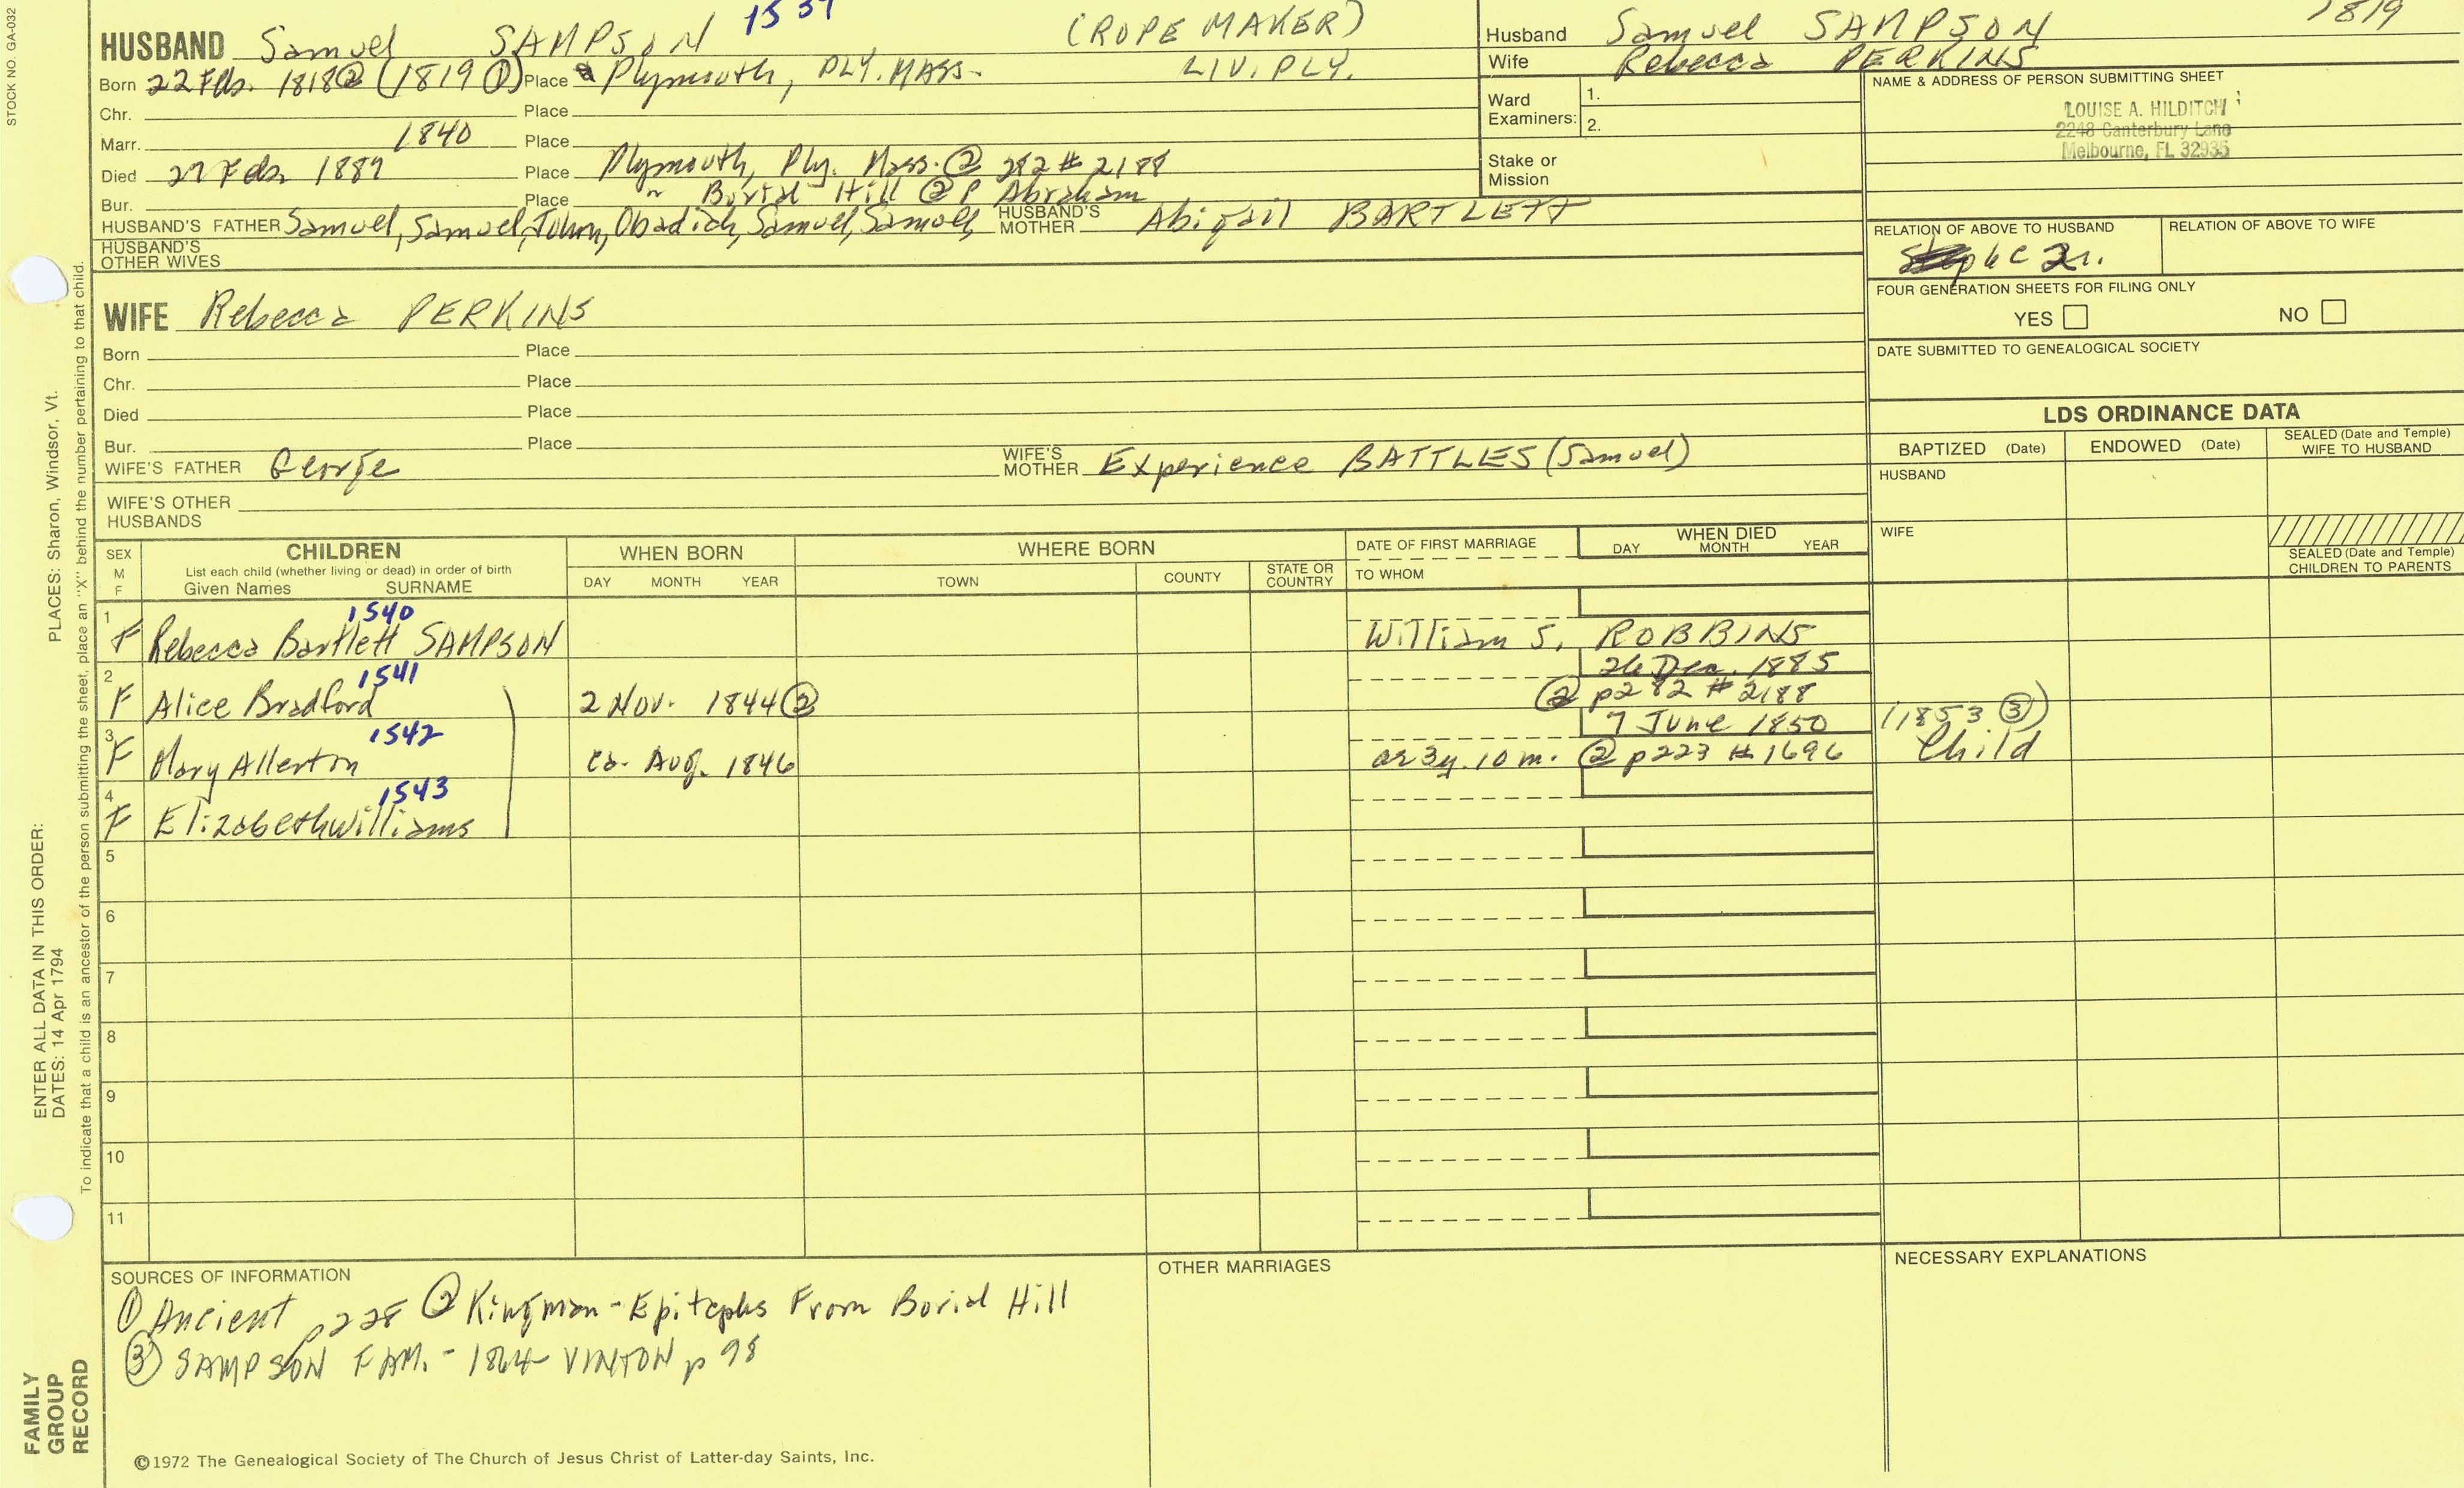 STOCK NO. GA-032
HUSBAND Samuel SAMPSON (ROPE MAKER)
Born 22 Feb. 1818② (1819 ①) Place Plymouth, PLY. MASS. LIV. PLY.
Chr. Place
Marr. 1840 Place
Died 27 Feb 1887 Place Plymouth, Ply. Mass. ② 282 # 2188
Bur. Place " Burial Hill ② P Abraham
HUSBAND'S FATHER Samuel, Samuel, John, Obadiah, Samuel, Samuel, HUSBAND'S MOTHER Abigail BARTLETT
HUSBAND'S OTHER WIVES
Husband Samuel SAMPSON 1819
Wife Rebecca PERKINS
Ward Examiners: 1.
2.
Stake or Mission
NAME & ADDRESS OF PERSON SUBMITTING SHEET
LOUISE A. HILDITCH
2248 Canterbury Lane
Melbourne, FL 32935
RELATION OF ABOVE TO HUSBAND RELATION OF ABOVE TO WIFE
6 C 2r.
FOUR GENERATION SHEETS FOR FILING ONLY
YES NO
DATE SUBMITTED TO GENEALOGICAL SOCIETY
WIFE Rebecca PERKINS
Born Place
Chr. Place
Died Place
Bur. Place
WIFE'S FATHER George WIFE'S MOTHER Experience BATTLES (Samuel)
WIFE'S OTHER HUSBANDS
LDS ORDINANCE DATA
BAPTIZED (Date) ENDOWED (Date) SEALED (Date and Temple) WIFE TO HUSBAND
HUSBAND
WIFE
SEALED (Date and Temple) CHILDREN TO PARENTS
SEX M F CHILDREN List each child (whether living or dead) in order of birth Given Names SURNAME WHEN BORN DAY MONTH YEAR WHERE BORN TOWN COUNTY STATE OR COUNTRY DATE OF FIRST MARRIAGE TO WHOM WHEN DIED DAY MONTH YEAR
1540
1 F Rebecca Bartlett SAMPSON William S. ROBBINS
1541 26 Dec. 1885
2 F Alice Bradford 2 Nov. 1844 ② ② p282 # 2188
1542 7 June 1850 (1853 ③)
3 F Mary Allerton ca. Aug. 1846 ae 3y. 10 m. ② p223 # 1696 Child
1543
4 F Elizabeth Williams
5
6
7
8
9
10
11
SOURCES OF INFORMATION
① Ancient p228 ② Kingman - Epitaphs From Burial Hill
③ SAMPSON FAM. - 1864 VINTON p 98
OTHER MARRIAGES
NECESSARY EXPLANATIONS
©1972 The Genealogical Society of The Church of Jesus Christ of Latter-day Saints, Inc.
PLACES: Sharon, Windsor, Vt.
ENTER ALL DATA IN THIS ORDER:
DATES: 14 Apr 1794
To indicate that a child is an ancestor of the person submitting the sheet, place an "X" behind the number pertaining to that child.
FAMILY
GROUP
RECORD